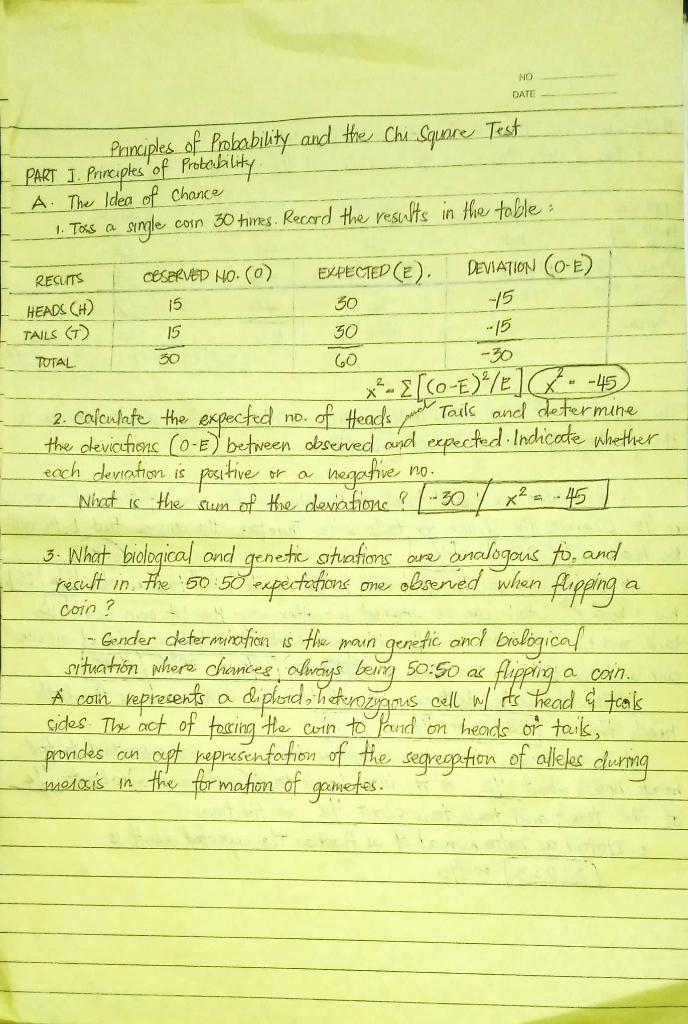 NO
DATE
Principles of Probability and the Chi Square Test
PART I. Principles of Probability.
A. The Idea of Chance
1. Toss a single coin 30 times. Record the results in the table:
RESULTS OBSERVED NO. (O) EXPECTED (E). DEVIATION (O-E)
HEADS (H) 15 30 -15
TAILS (T) 15 30 -15
TOTAL 30 60 -30
x² = Σ[(O-E)²/E] x² = -45
2. Calculate the expected no. of Heads and Tails and determine
the deviations (O-E) between observed and expected. Indicate whether
each deviation is positive or a negative no.
What is the sum of the deviations? -30 / x² = -45
3. What biological and genetic situations are analogous to, and
result in, the 50:50 expectations one observed when flipping a
coin?
- Gender determination is the main genetic and biological
situation where chances always being 50:50 as flipping a coin.
A coin represents a diploid, heterozygous cell w/ its head & tails
sides. The act of tossing the coin to land on heads or tails,
provides an apt representation of the segregation of alleles during
meiosis in the formation of gametes.